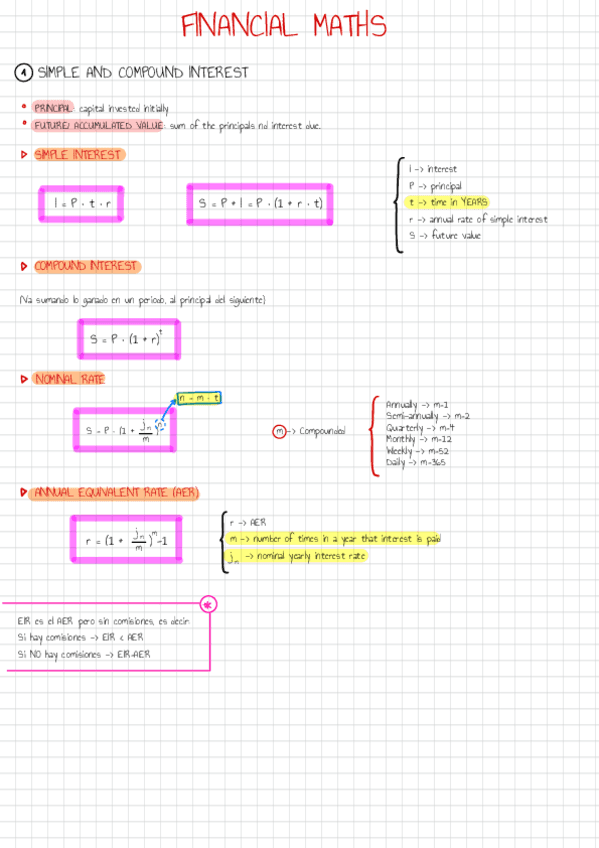 FINANCIAL MATHS
1 SIMPLE AND COMPOUND INTEREST
PRINCIPAL: capital invested initially
FUTURE/ ACCUMULATED VALUE: sum of the principals nd interest due.
SIMPLE INTEREST
I = P · t · r
S = P + I = P · (1 + r · t)
I -> interest
P -> principal
t -> time in YEARS
r -> annual rate of simple interest
S -> future value
COMPOUND INTEREST
(Va sumando lo ganado en un periodo, al principal del siguiente)
S = P · (1 + r)^t
NOMINAL RATE
n = m · t
S = P · (1 + jm/m)^n
m -> Compounded
Annually -> m=1
Semi-annually -> m=2
Quarterly -> m=4
Monthly -> m=12
Weekly -> m=52
Daily -> m=365
ANNUAL EQUIVALENT RATE (AER)
r = (1 + jm/m)^m -1
r -> AER
m -> number of times in a year that interest is paid
jm -> nominal yearly interest rate
*
EIR es el AER pero sin comisiones, es decir:
Si hay comisiones -> EIR < AER
Si NO hay comisiones -> EIR=AER